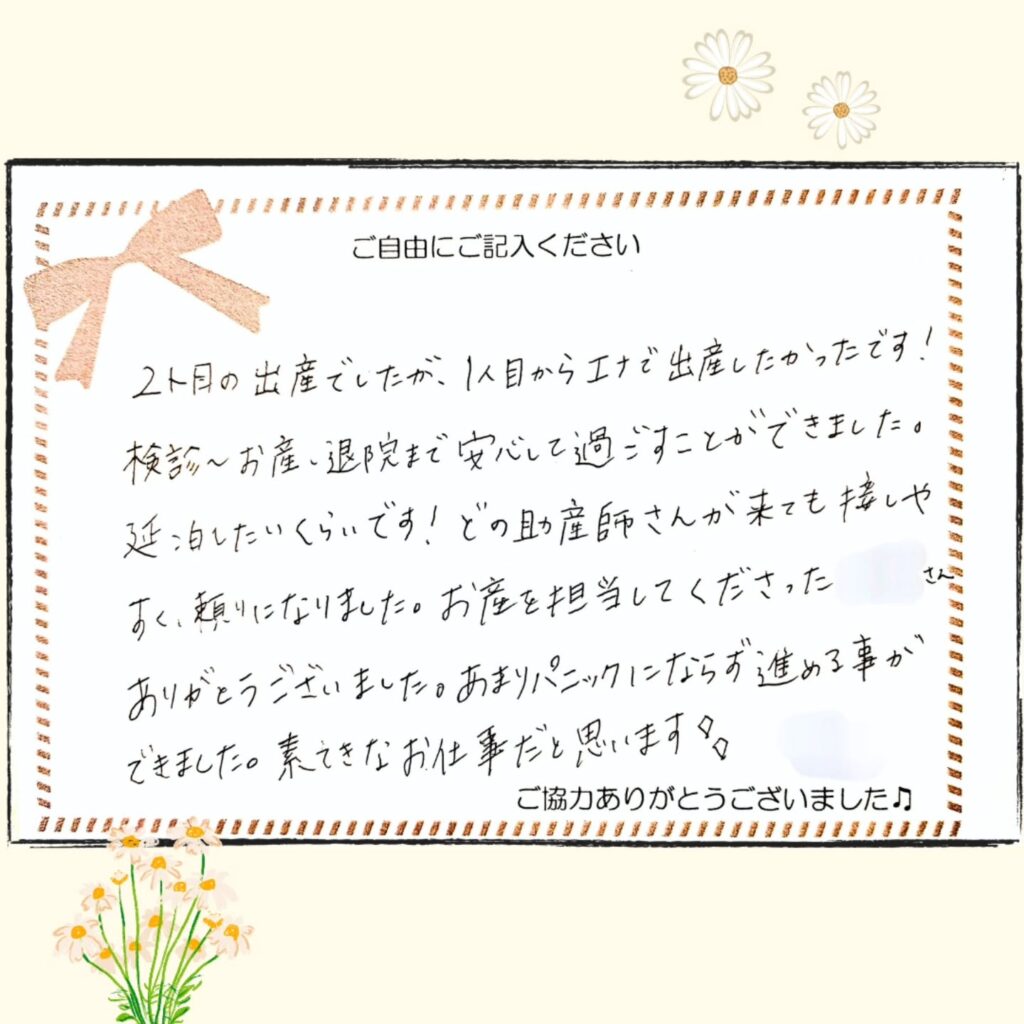 ご自由にご記入ください
2人目の出産でしたが、1人目からエナで出産したかったです!
検診〜お産、退院まで安心して過ごすことができました。
延泊したいくらいです!どの助産師さんが来ても接しや
すく、頼りになりました。お産を担当してくださった さん
ありがとうございました。あまりパニックにならず進める事が
できました。素てきなお仕事だと思います
ご協力ありがとうございました♫